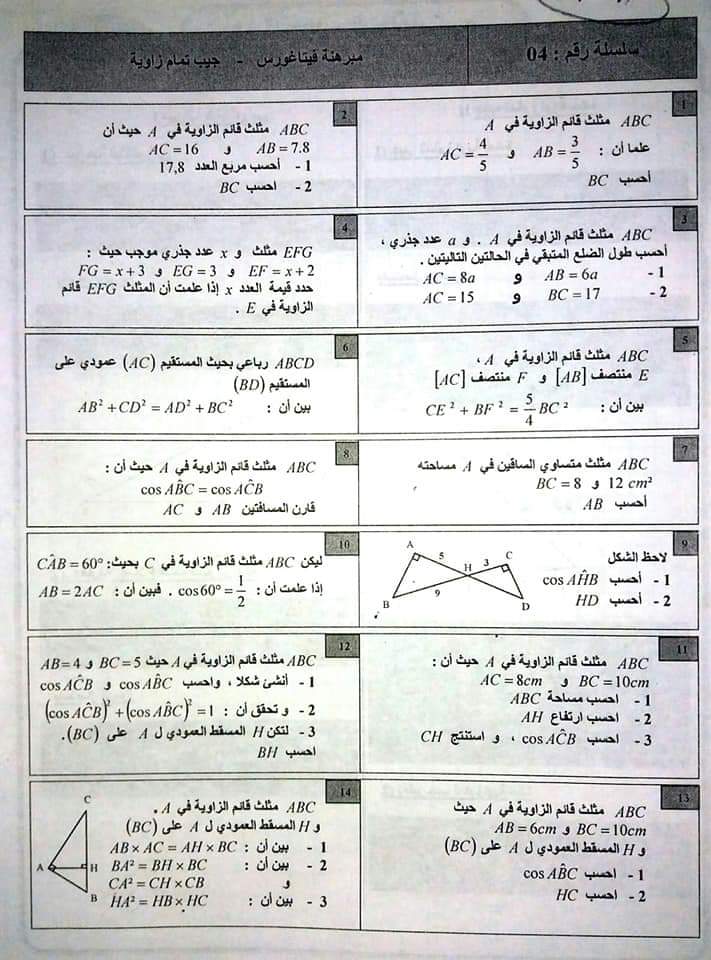 سلسلة رقم : 04
مبرهنة فيتاغورس - جيب تمام زاوية
1
ABC مثلث قائم الزاوية في A
علما أن : AB = 3/5 و AC = 4/5
أحسب BC
2
ABC مثلث قائم الزاوية في A حيث أن
AB = 7.8 و AC = 16
1 - أحسب مربع العدد 17,8
2 - احسب BC
3
ABC مثلث قائم الزاوية في A . و a عدد جذري ،
أحسب طول الضلع المتبقي في الحالتين التاليتين .
1 - AB = 6a و AC = 8a
2 - BC = 17 و AC = 15
4
EFG مثلث و x عدد جذري موجب حيث :
EF = x + 2 و EG = 3 و FG = x + 3
حدد قيمة العدد x إذا علمت أن المثلث EFG قائم
الزاوية في E .
5
ABC مثلث قائم الزاوية في A ،
E منتصف [AB] و F منتصف [AC]
بين أن : CE² + BF² = 5/4 BC²
6
ABCD رباعي بحيث المستقيم (AC) عمودي على
المستقيم (BD)
بين أن : AB² + CD² = AD² + BC²
7
ABC مثلث متساوي الساقين في A مساحته
12 cm² و BC = 8
أحسب AB
8
ABC مثلث قائم الزاوية في A حيث أن :
cos AB̂C = cos AĈB
قارن المسافتين AB و AC
9
لاحظ الشكل
1 - أحسب cos AĤB
2 - أحسب HD
A
5
3
C
H
9
B
D
10
ليكن ABC مثلث قائم الزاوية في C بحيث: CÂB = 60°
إذا علمت أن : cos 60° = 1/2 . فبين أن : AB = 2AC
11
ABC مثلث قائم الزاوية في A حيث أن :
BC = 10cm و AC = 8cm
1 - احسب مساحة ABC
2 - احسب ارتفاع AH
3 - احسب cos AĈB ، و استنتج CH
12
ABC مثلث قائم الزاوية في A حيث BC = 5 و AB = 4
1 - أنشئ شكلا ، واحسب cos AB̂C و cos AĈB
2 - و تحقق أن : (cos AĈB)² + (cos AB̂C)² = 1
3 - لتكن H المسقط العمودي ل A على (BC).
احسب BH
13
ABC مثلث قائم الزاوية في A حيث
BC = 10cm و AB = 6cm
و H المسقط العمودي ل A على (BC)
1- احسب cos AB̂C
2 - احسب HC
14
ABC مثلث قائم الزاوية في A .
و H المسقط العمودي ل A على (BC)
1 - بين أن : AB × AC = AH × BC
2 - بين أن : BA² = BH × BC
و CA² = CH × CB
3 - بين أن : HA² = HB × HC
C
A
H
B